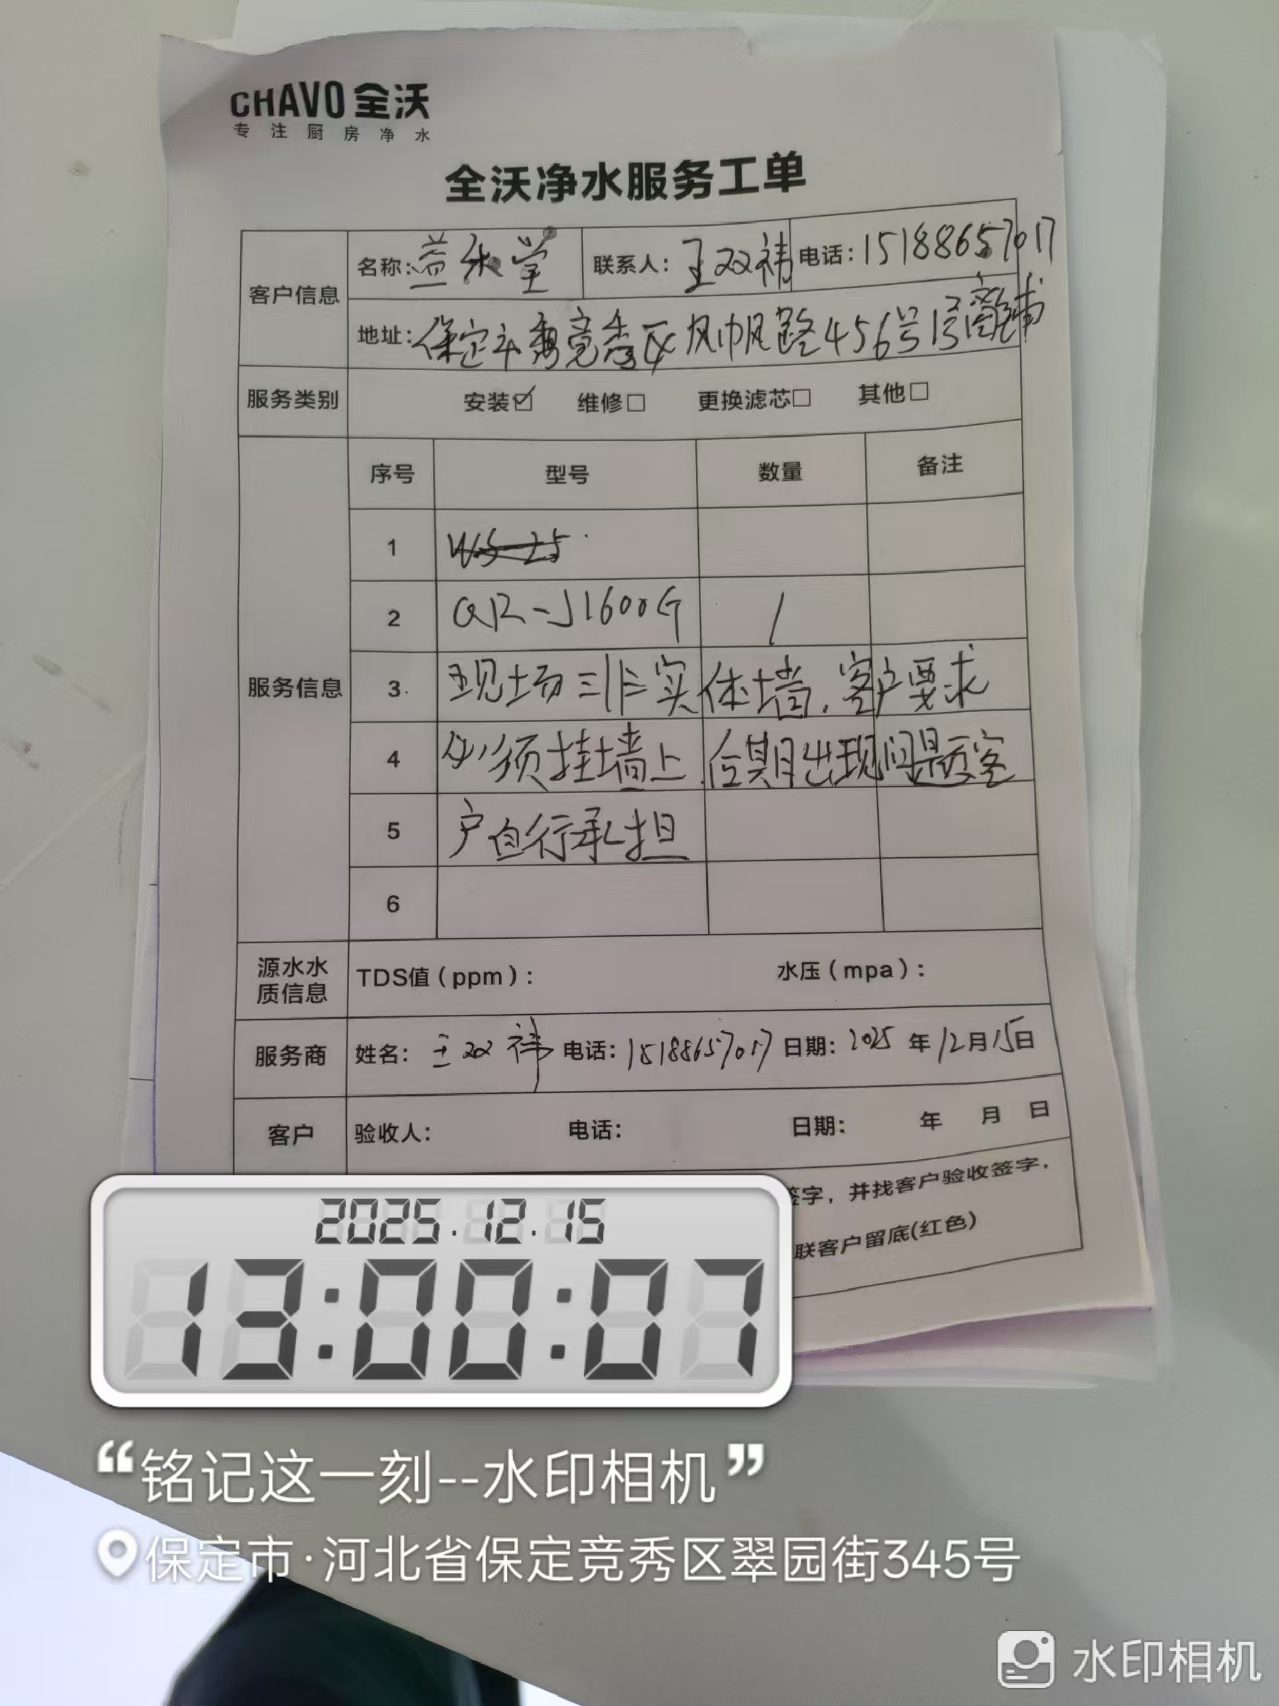 CHAVO 全沃
专注厨房净水
全沃净水服务工单
客户信息 名称: 益禾堂 联系人: 王双祎 电话: 15188657017
地址: 保定市竞秀区风帆路456号1号商铺
服务类别 安装☑ 维修□ 更换滤芯□ 其他□
服务信息 序号 型号 数量 备注
1 WS-25
2 QR-J1600G 1
3 现场三非实体墙,客户要求
4 必须挂墙上,后期出现问题客
5 户自行承担
6
源水水质信息 TDS值(ppm): 水压(mpa):
服务商 姓名: 王双祎 电话: 15188657017 日期: 2025年12月15日
客户 验收人: 电话: 日期: 年 月 日
签字,并找客户验收签字,
联客户留底(红色)
2025.12.15
13:00:07
“铭记这一刻--水印相机”
保定市·河北省保定竞秀区翠园街345号
水印相机